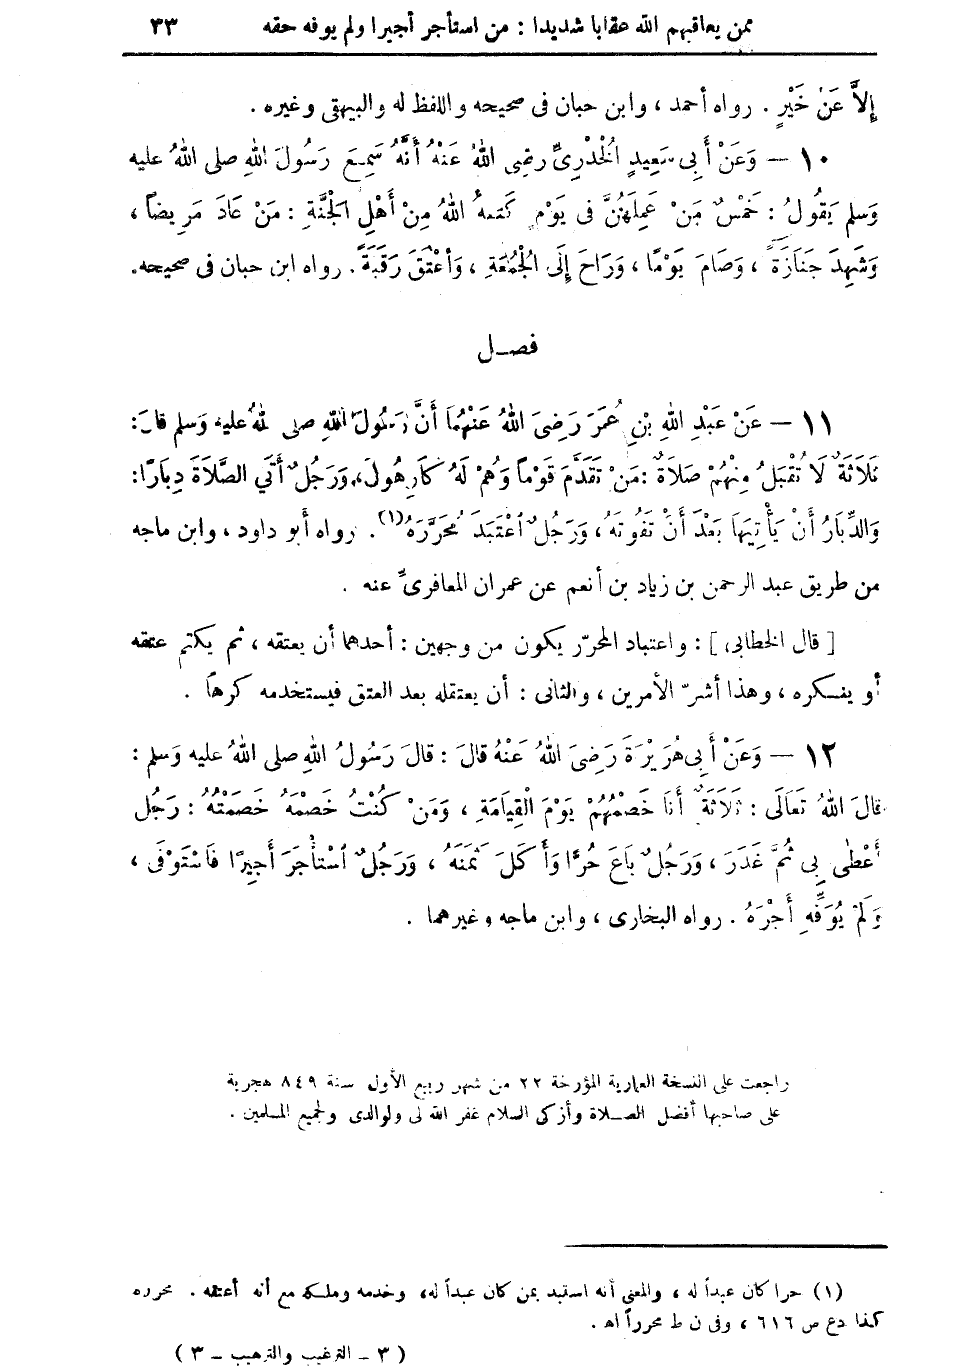 ممن يعاقبهم الله عقابا شديدا : من استأجر أجيرا ولم يوفه حقه ٣٣
إِلاَّ عَنْ خَيْرٍ . رواه أحمد ، وابن حبان فى صحيحه واللفظ له والبيهقى وغيره .
١٠ — وَعَنْ أَبِى سَعِيدٍ الْخُدْرِىِّ رضى اللهُ عَنْهُ أَنَّهُ سَمِعَ رَسُولَ اللهِ صلى اللهُ عليه
وَسلم يَقُولُ : خَمْسٌ مَنْ عَمِلَهُنَّ فى يَوْمٍ كَتَبهُ اللهُ مِنْ أَهْلِ الْجَنَّةِ : مَنْ عَادَ مَرِيضاً ،
وَشَهِدَ جَنَازَةً ، وَصَامَ يَوْمًا ، وَرَاحَ إِلَى الْجُمُعَةِ ، وَأَعْتَقَ رَقَبَةً . رواه ابن حبان فى صحيحه.
فصـل
١١ — عَنْ عَبْدِ اللهِ بْنِ عُمَرَ رَضِىَ اللهُ عَنْهُمَا أَنَّ رَسُولَ اللهِ صلى اللهُ عليه وَسلم قالَ:
ثَلَاثَةٌ لَا تُقْبَلُ مِنْهُمْ صَلَاةٌ : مَنْ تَقَدَّمَ قَوْماً وَهُمْ لَهُ كَارِهُونَ، وَرَجُلٌ أَتَى الصَّلَاةَ دِبَارًا:
وَالدِّبَارُ أَنْ يَأْتِيَهَا بَعْدَ أَنْ تَفُوتَهُ ، وَرَجُلٌ اعْتَبَدَ مُحَرَّرَهُ(١) . رواه أبو داود ، وابن ماجه
من طريق عبد الرحمن بن زياد بن أنعم عن عمران المعافرىِّ عنه .
[ قال الخطابى ] : واعتباد المحرّر يكون من وجهين : أحدهما أن يعتقه ، ثم يكتم عتقه
أو ينكره ، وهذا أشرّ الأمرين ، والثانى : أن يعتقله بعد العتق فيستخدمه كرهاً .
١٢ — وَعَنْ أَبِى هُرَيْرَةَ رَضِىَ اللهُ عَنْهُ قالَ : قالَ رَسُولُ اللهِ صلى اللهُ عليه وَسلم :
قالَ اللهُ تَعَالَى : ثَلَاثَةٌ أَنَا خَصْمُهُمْ يَوْمَ الْقِيَامَةِ ، وَمَنْ كُنْتُ خَصْمَهُ خَصَمْتُهُ : رَجُلٌ
أَعْطَى بِى ثُمَّ غَدَرَ ، وَرَجُلٌ بَاعَ حُرًّا وَأَكَلَ ثَمَنَهُ ، وَرَجُلٌ اسْتَأْجَرَ أَجِيرًا فَاسْتَوْفَى ،
وَلَمْ يُوَفِّهِ أَجْرَهُ . رواه البخارى ، وابن ماجه وغيرهما .
راجعت على النسخة العمارية المؤرخة ٢٢ من شهر ربيع الأول سنة ٨٤٩ هجرية
على صاحبها أفضل الصـلاة وأزكى السلام غفر الله لى ولوالدى ولجميع المسلمين .
(١) حرا كان عبداً له ، والمعنى أنه استبد بمن كان عبداً له، وخدمه وملكه مع أنه أعتقه . محرره
كذا دع ص ٦١٦ ، وفى ن ط محرراً اه .
( ٣ – الترغيب والترهيب – ٣ )